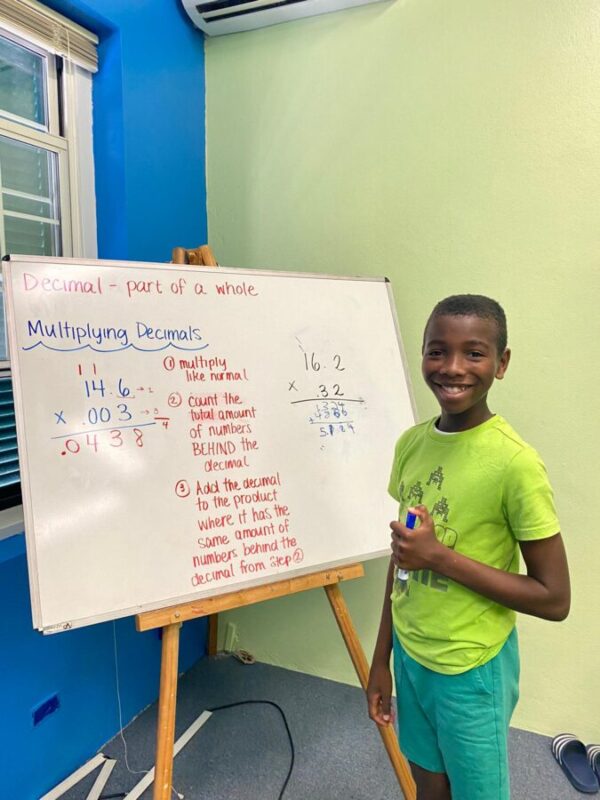 Decimal - part of a whole
Multiplying Decimals
1 1
14.6 → 1
x .003 → 3
4
.0438
① multiply
like normal
② count the
total amount
of numbers
BEHIND the
decimal
③ Add the decimal
to the product
where it has the
same amount of
numbers behind the
decimal from step ②
16.2
x .32